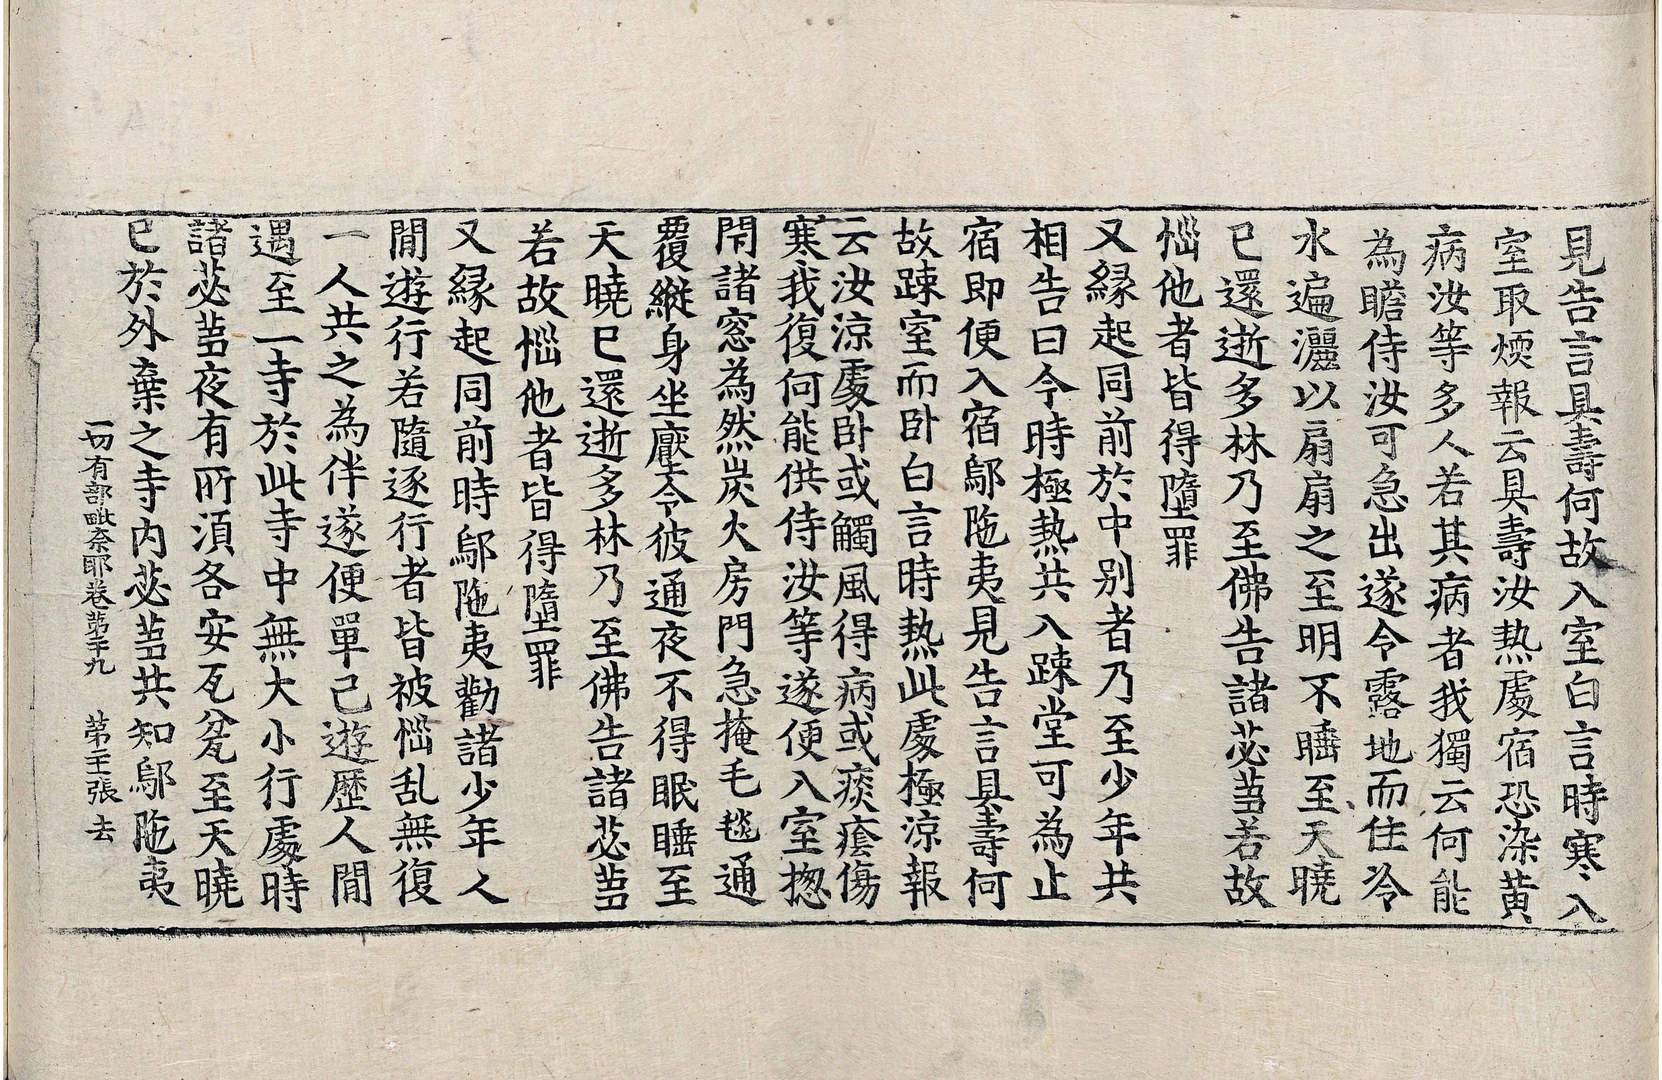 見告言具壽何故入室白言時寒入
室取煗報云具壽汝熱處宿恐染黃
病汝等多人若其病者我獨云何能
為瞻侍汝可急出遂令露地而住冷
水遍灑以扇扇之至明不睡至天曉
已還逝多林乃至佛告諸苾芻若故
惱他者皆得墮罪
又緣起同前於中別者乃至少年共
相告曰今時極熱共入踈堂可為止
宿即便入宿鄔陁夷見告言具壽何
故踈室而卧白言時熱此處極涼報
云汝涼處卧或觸風得病或痰癊傷
寒我復何能供侍汝等遂便入室揔
閇諸窓為然炭火房門急掩毛毯通
覆縱身坐壓令彼通夜不得眠睡至
天曉已還逝多林乃至佛告諸苾芻
若故惱他者皆得墮罪
又緣起同前時鄔陁夷勸諸少年人
閒遊行若隨逐行者皆被惱乱無復
一人共之為伴遂便單己遊歷人閒
遇至一寺於此寺中無大小行處時
諸苾芻夜有所湏各安瓦瓮至天曉
已於外棄之寺內苾芻共知鄔陁夷
一切有部毗奈耶卷第三十九　第二十二張　去